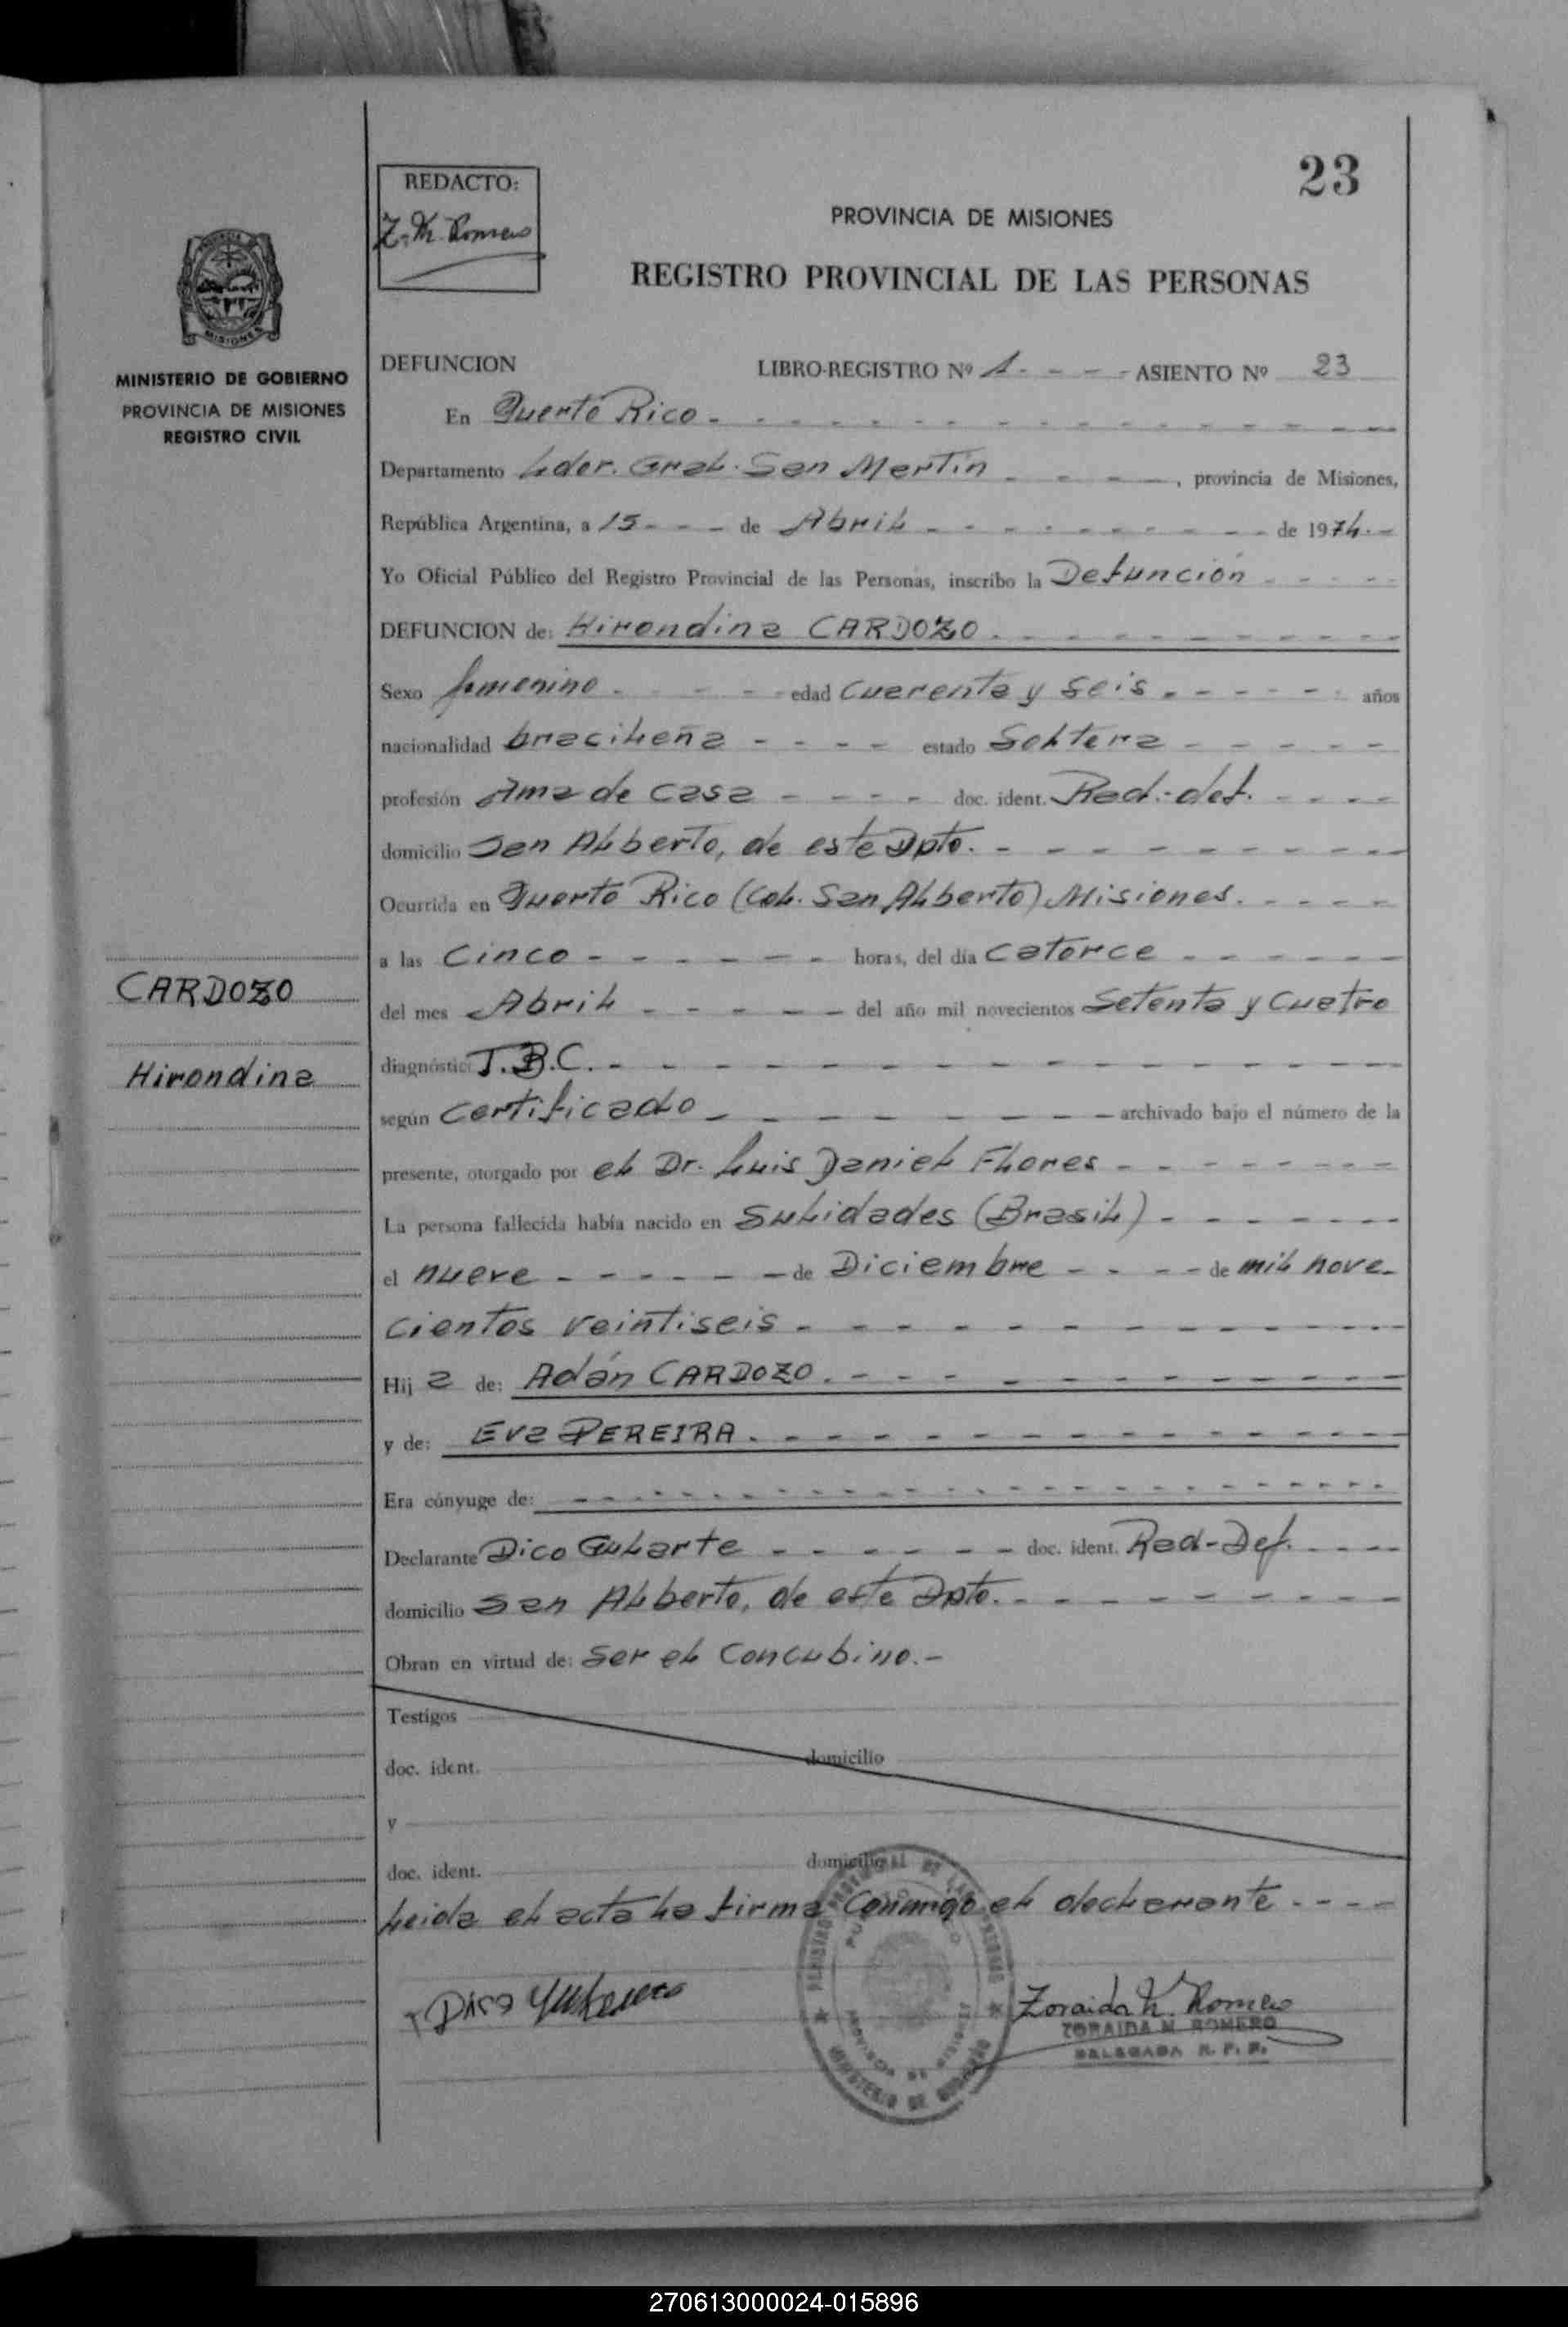 23
REDACTO:
Z. M. Romero
PROVINCIA DE MISIONES
REGISTRO PROVINCIAL DE LAS PERSONAS
MISIONES
MINISTERIO DE GOBIERNO
PROVINCIA DE MISIONES
REGISTRO CIVIL
DEFUNCION LIBRO-REGISTRO Nº 1 - - - - ASIENTO Nº 23
En Puerto Rico - - - -
Departamento Lder. Gral. San Martín - - - -, provincia de Misiones,
República Argentina, a 15 - - - de Abril - - - - de 1974.-
Yo Oficial Público del Registro Provincial de las Personas, inscribo la Defunción - - - -
DEFUNCION de: Hirondina CARDOZO. - - - -
Sexo femenino - - - - edad cuarenta y seis - - - - años
nacionalidad bracileña - - - - estado Soltera - - - -
profesión Ama de casa - - - - doc. ident. Rad.-def. - - - -
domicilio San Alberto, de este Dpto. - - - -
Ocurrida en Puerto Rico (Col. San Alberto) Misiones. - - - -
a las Cinco - - - - horas, del día Catorce - - - -
CARDOZO
del mes Abril - - - - del año mil novecientos Setenta y Cuatro
Hirondina
diagnóstico T.B.C. - - - -
según Certificado - - - - archivado bajo el número de la
presente, otorgado por el Dr. Luis Daniel Flores - - - -
La persona fallecida había nacido en Sulidades (Brasil) - - - -
el nueve - - - - de Diciembre - - - - de mil nove-
cientos veintiseis - - - -
Hij a de: Adán CARDOZO. - - - -
y de: Eva PEREIRA. - - - -
Era cónyuge de: - - - -
Declarante Dico Gularte - - - - doc. ident. Rad-Def. - - - -
domicilio San Alberto, de este Dpto. - - - -
Obran en virtud de: Ser el Concubino.-
Testigos
doc. ident. domicilio
y
doc. ident. domicilio
Leida el acta la firma Conmigo el declarante - - - -
Dico
Zoraida M. Romero
ZORAIDA M. ROMERO
DELEGADA R. P. P.
MINISTERIO DE GOBIERNO
270613000024-015896